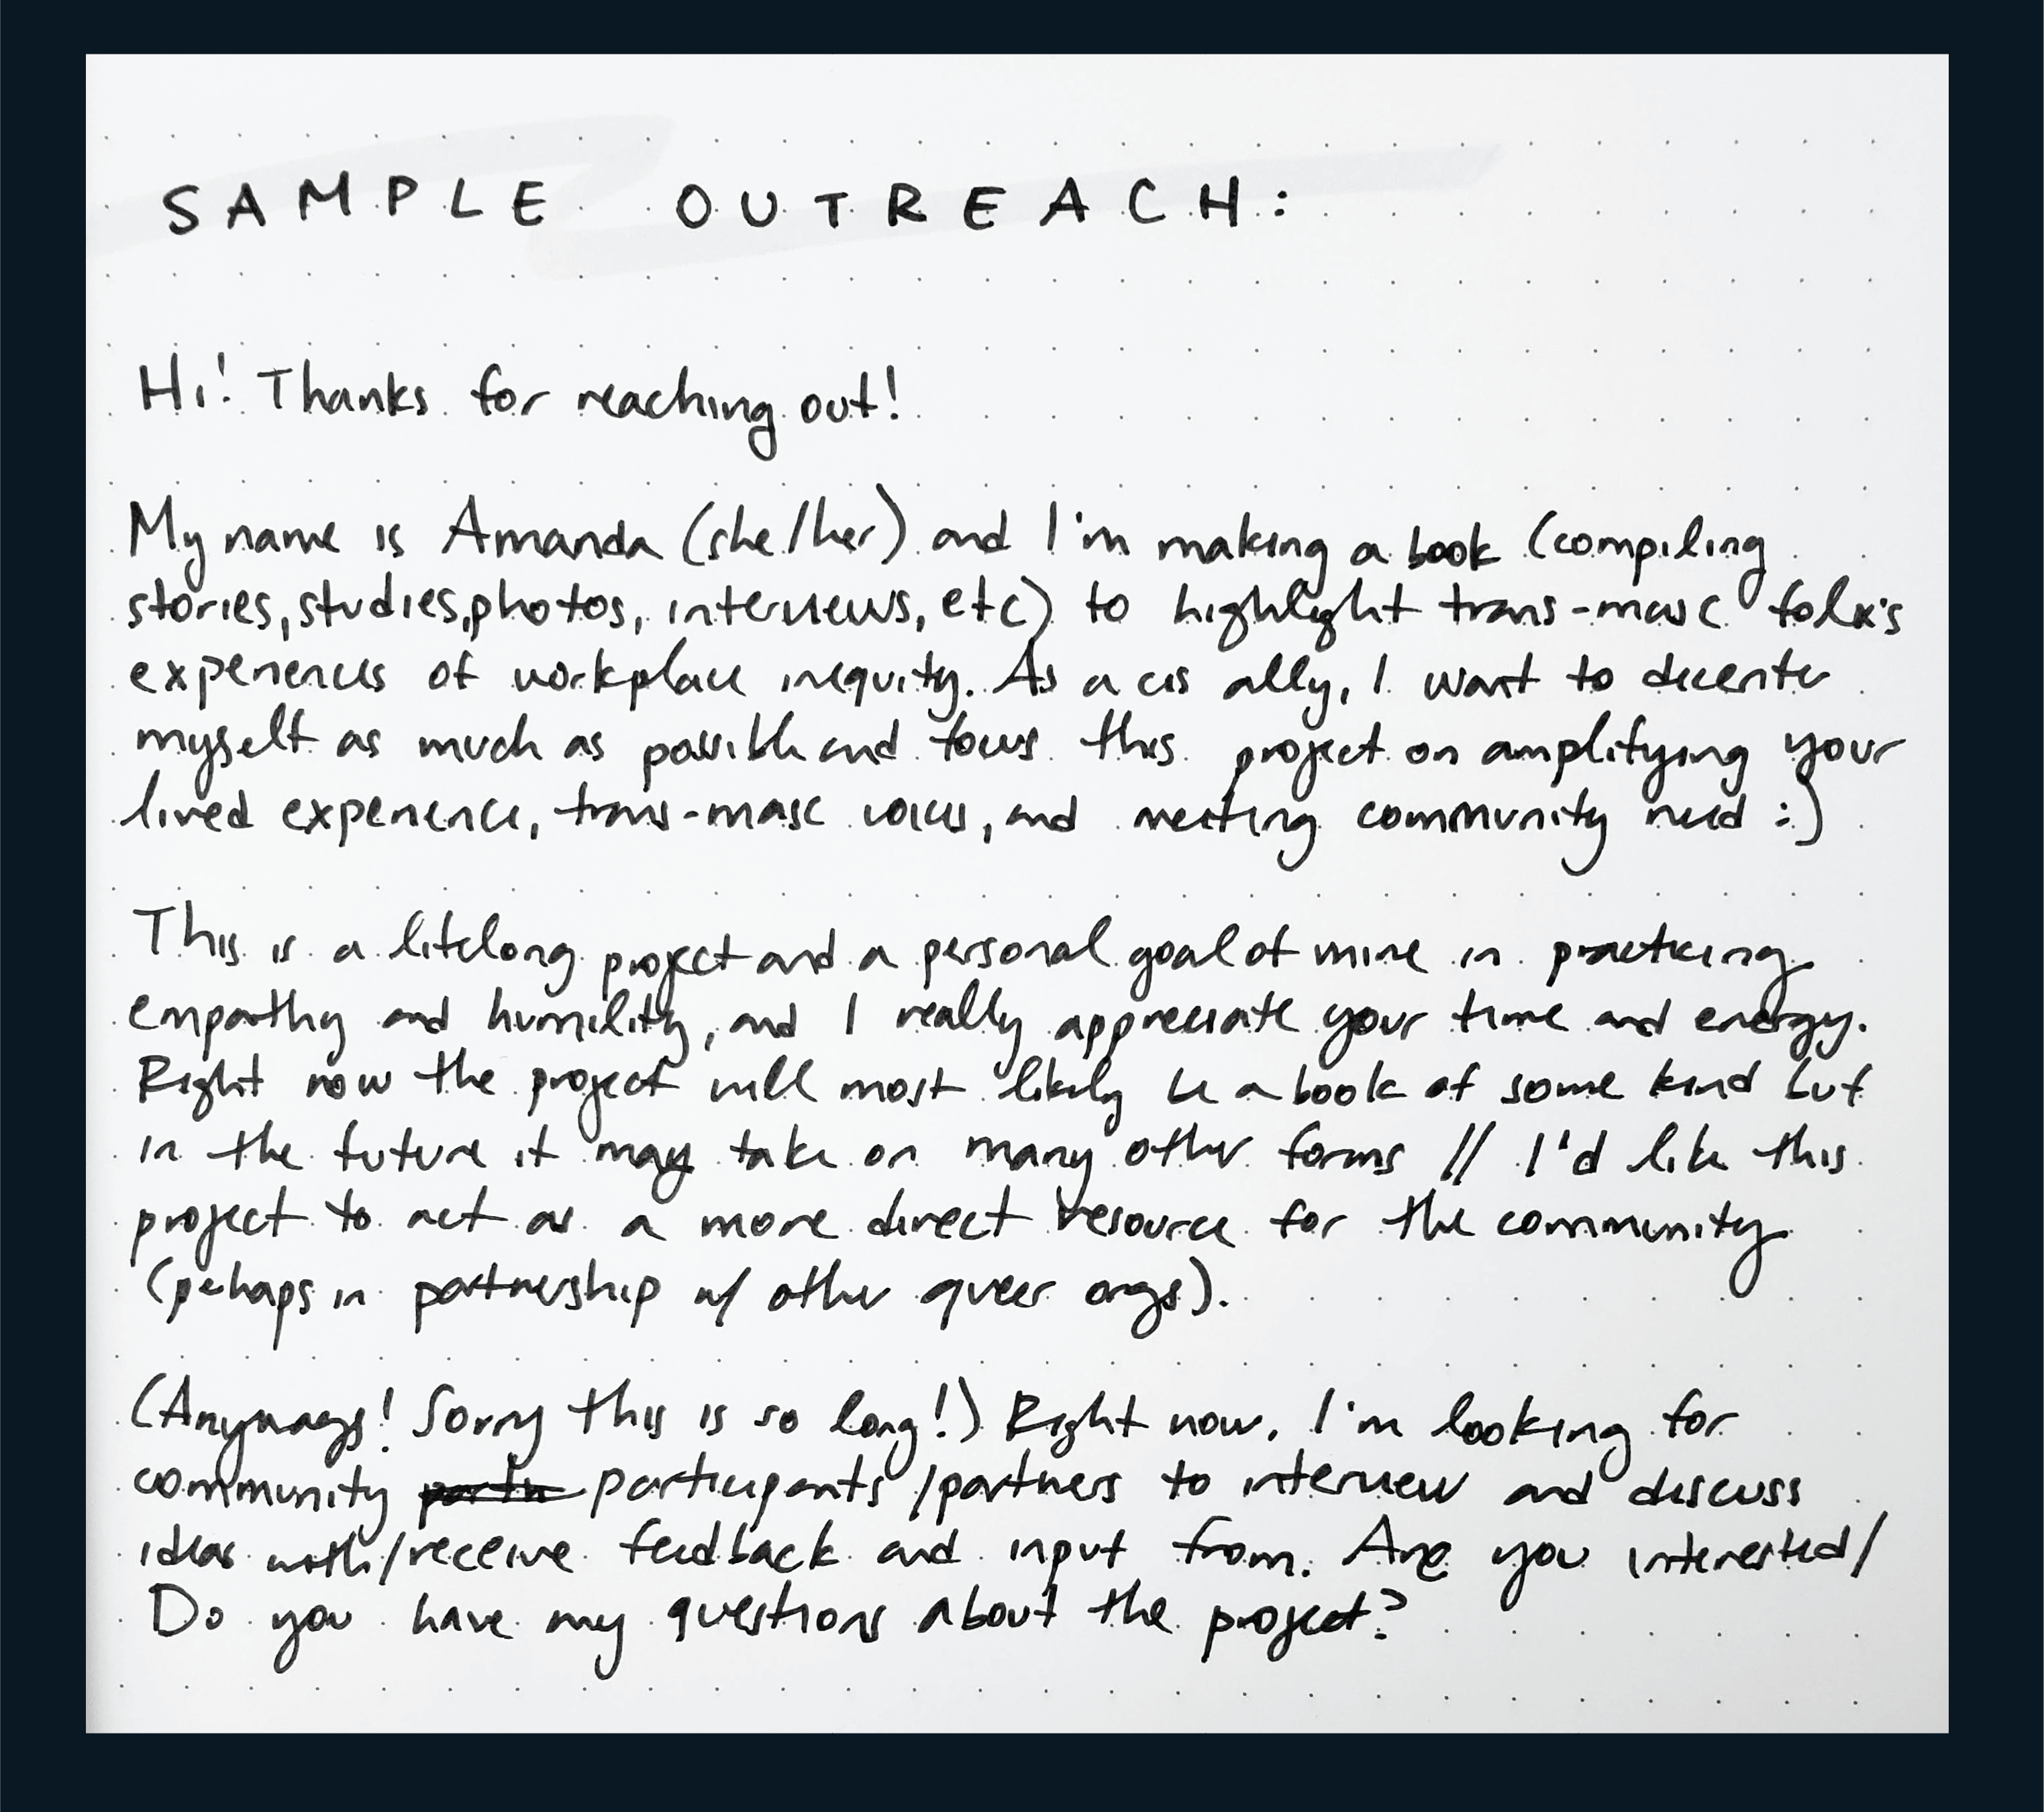 SAMPLE OUTREACH:
Hi! Thanks for reaching out!
My name is Amanda (she/her) and I'm making a book (compiling
stories, studies, photos, interviews, etc) to highlight trans-masc folx's
experiences of workplace inequity. As a cis ally, I want to decenter
myself as much as possible and focus this project on amplifying your
lived experience, trans-masc voices, and meeting community need :)
This is a lifelong project and a personal goal of mine in practicing
empathy and humility, and I really appreciate your time and energy.
Right now the project will most likely be a book of some kind but
in the future it may take on many other forms // I'd like this
project to act as a more direct resource for the community
(perhaps in partnership w/ other queer orgs).
(Anyways! Sorry this is so long!) Right now, I'm looking for
community participants/partners to interview and discuss
ideas with/receive feedback and input from. Are you interested/
Do you have any questions about the project?